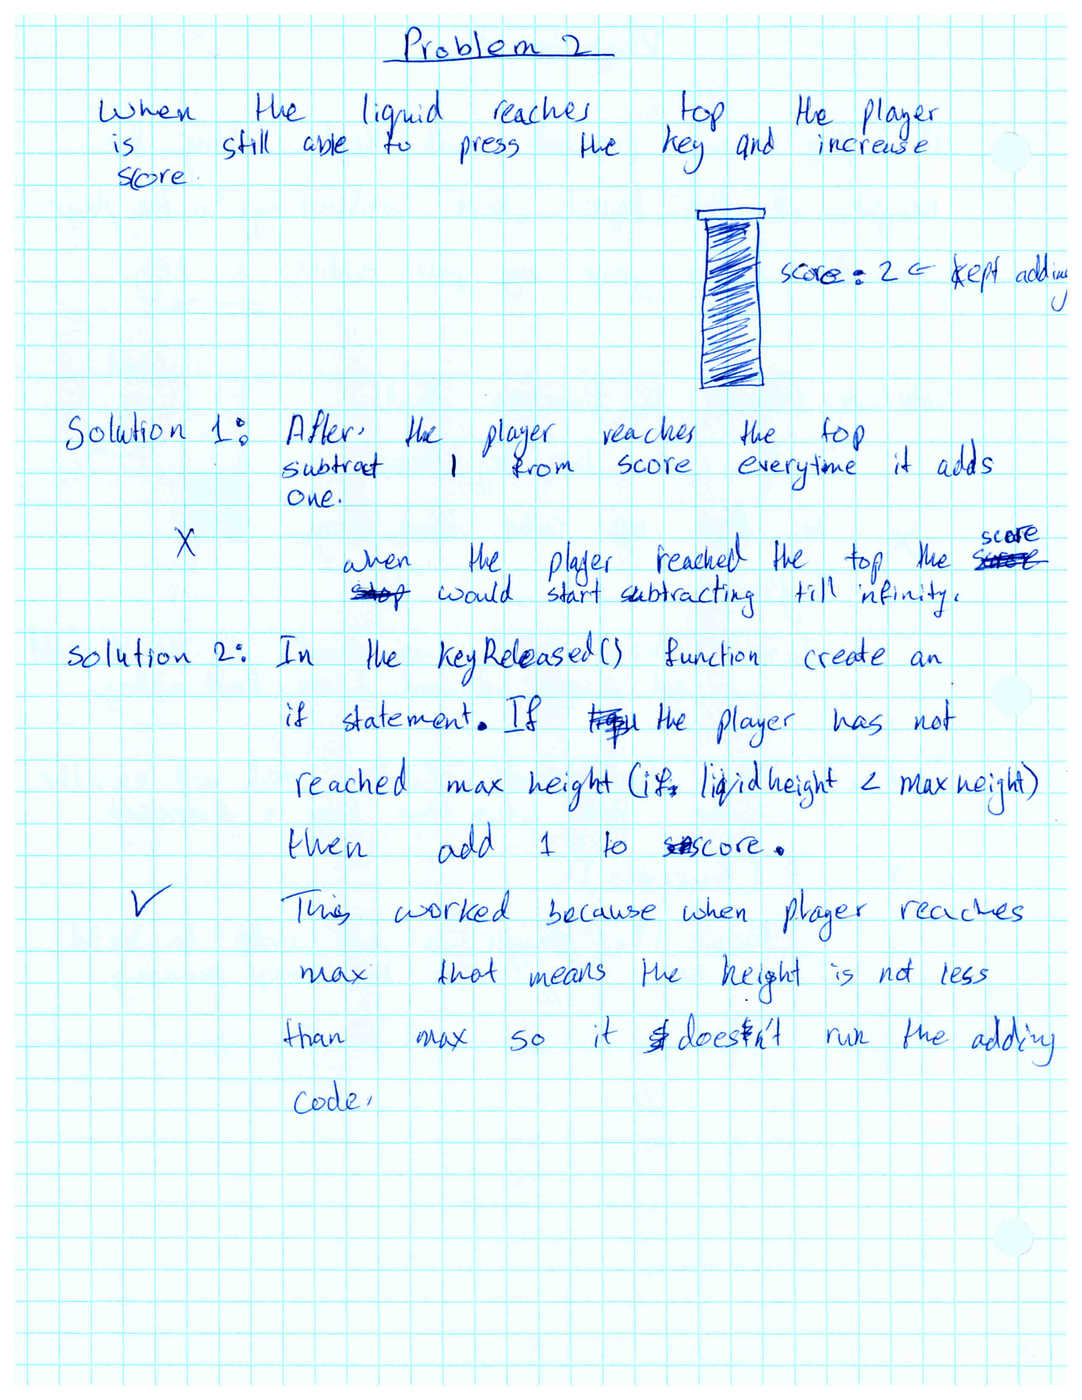 Problem 2
When the liquid reaches top the player
is still able to press the key and increase
score.
score: 2 ← kept adding
Solution 1: After the player reaches the top
subtract 1 from score everytime it adds
one.
X
when the player reached the top the score
would start subtracting till infinity.
solution 2: In the keyReleased() function create an
if statement. If the player has not
reached max height (if liqidheight < maxheight)
then add 1 to score.
✓
This worked because when player reaches
max that means the height is not less
than max so it doesn't run the adding
code.